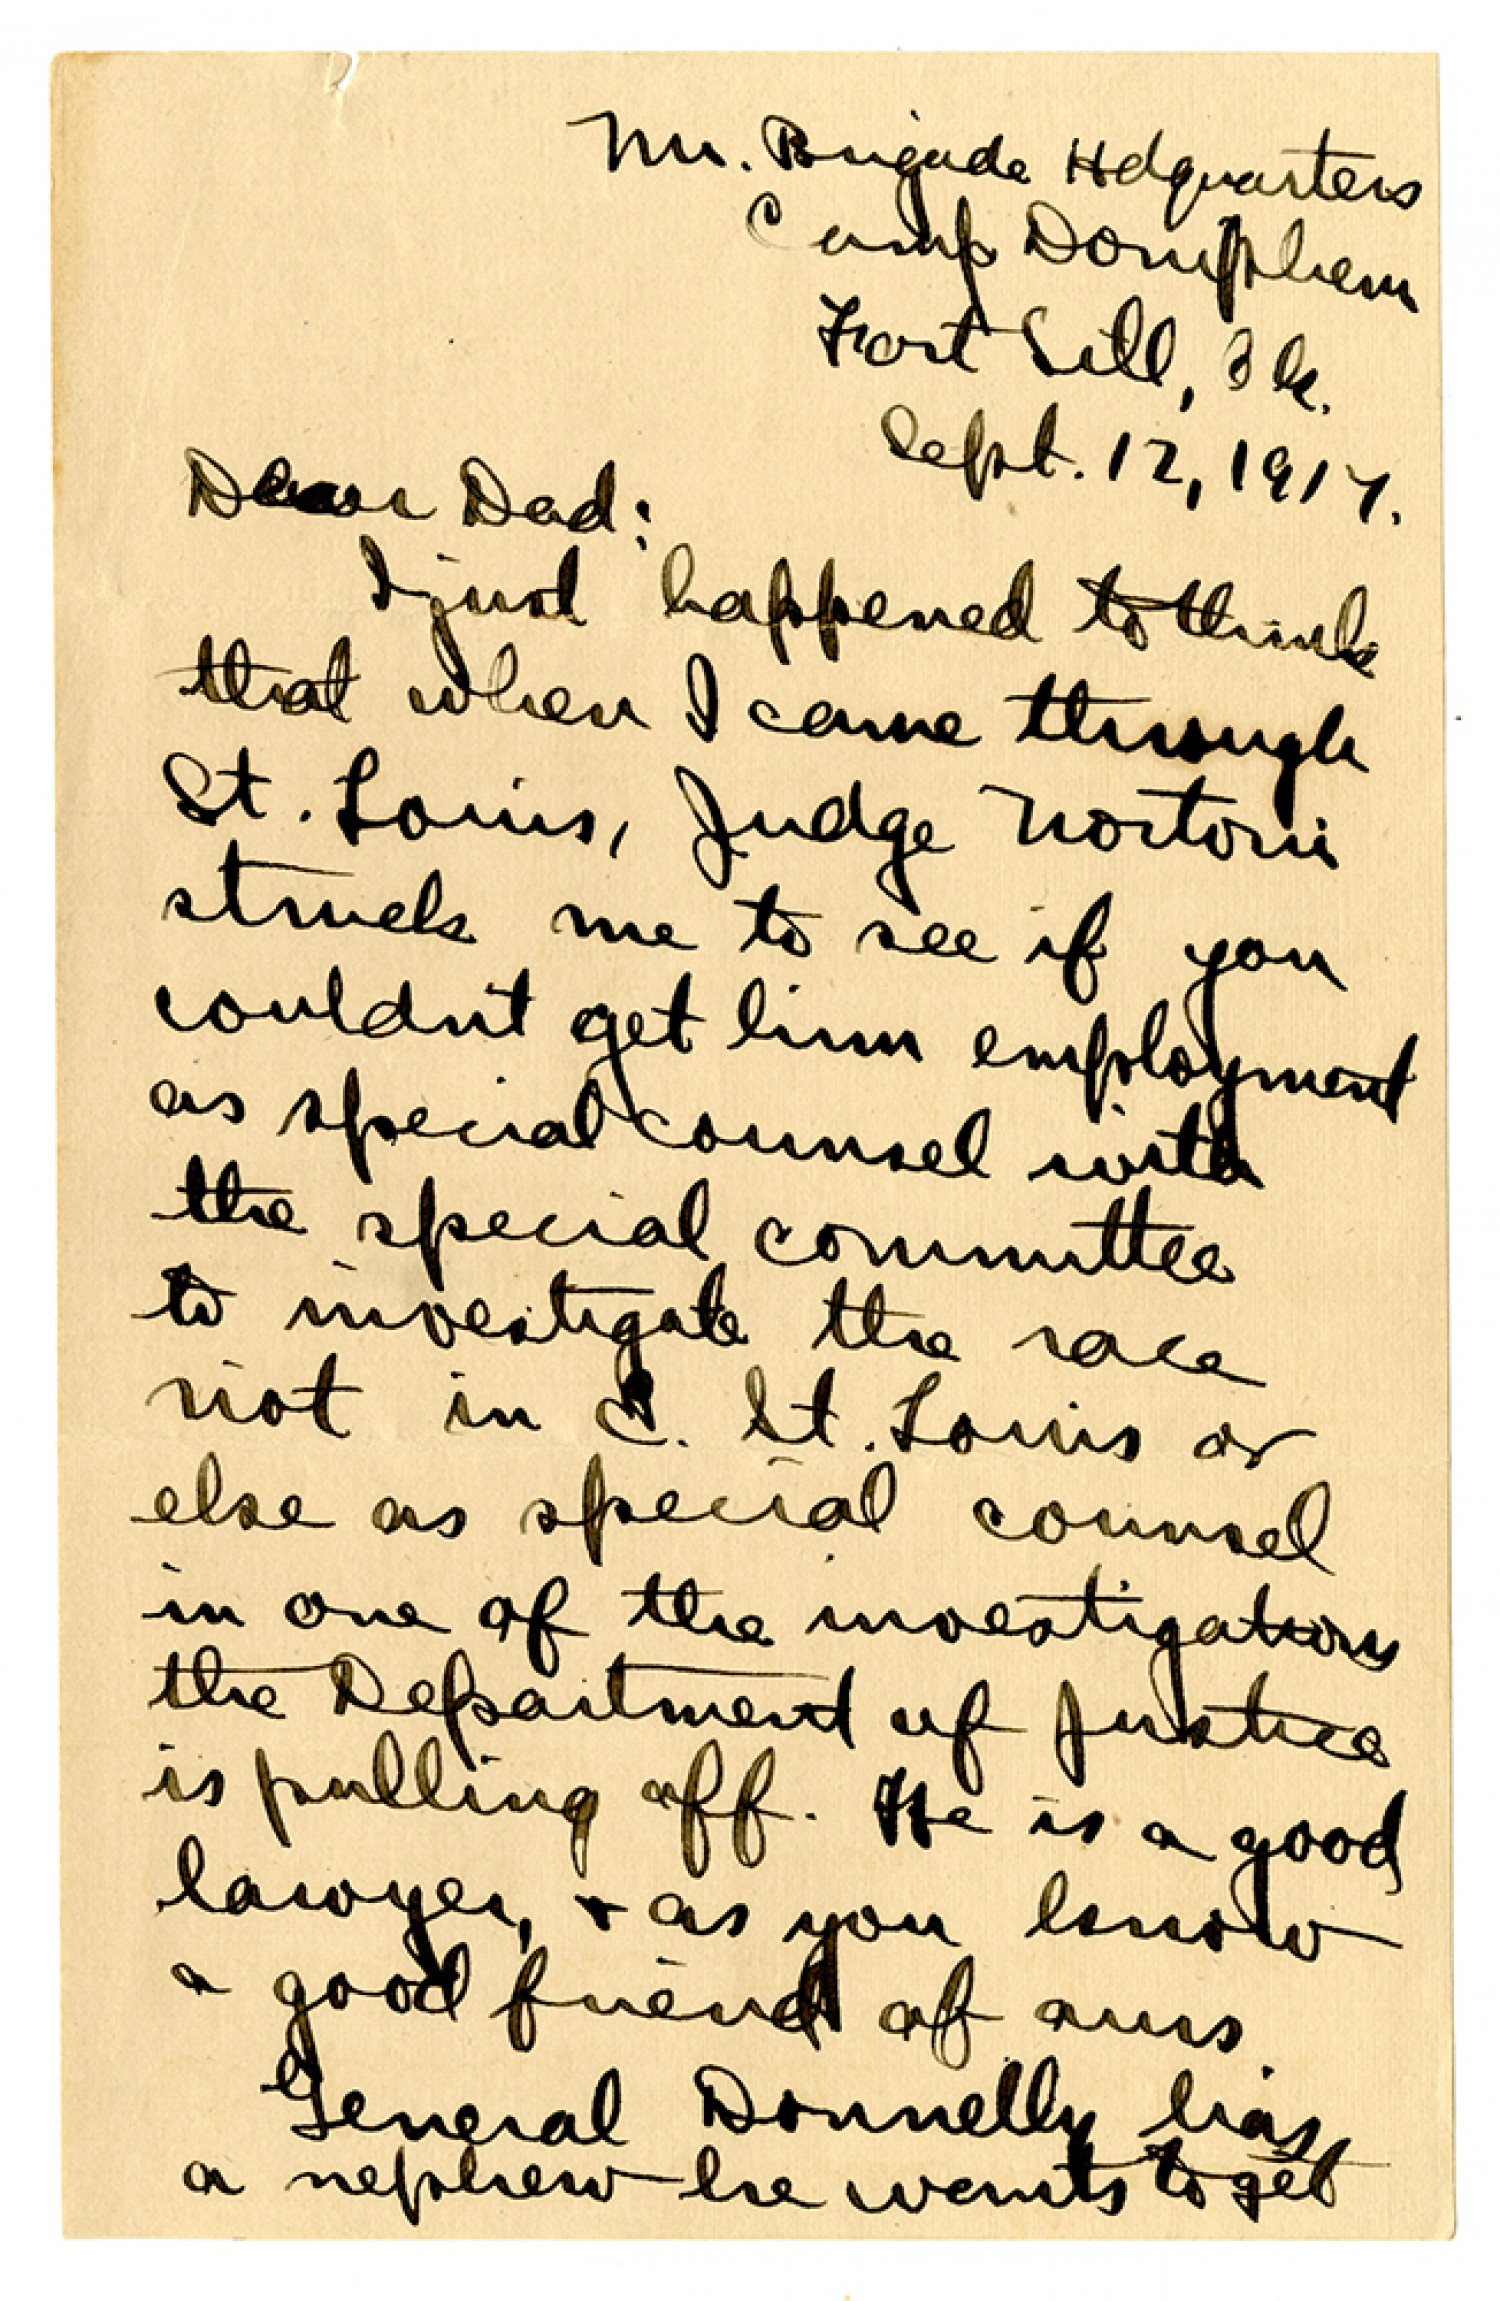 Mo. Brigade Hdquarters
Camp Doniphan
Fort Sill, Ok.
Sept. 12, 1917.
Dear Dad:
I just happened to think
that when I came through
St. Louis, Judge Nortoni
struck me to see if you
couldn't get him employment
as special counsel with
the special committee
to investigate the race
riot in E. St. Louis or
else as special counsel
in one of the investigations
the Department of Justice
is pulling off. He is a good
lawyer, & as you know
a good friend of ours.
General Donnelly has
a nephew he wants to get